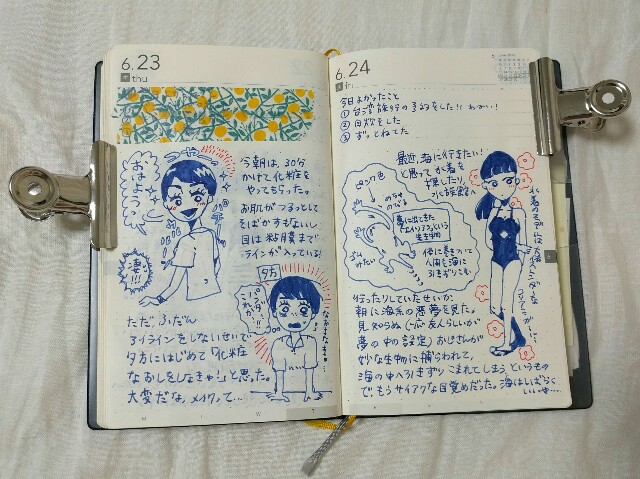 6.23
thu
おはよう
凄!!!
今朝は、30分
かけて化粧を
やってもらった。
お肌がつるっとして
そばかすもないし
目は粘膜まで
ラインが入っている!
夕方
パンダか!!
ただ、ふだん
アイラインをしないせいで
夕方にはじめて「化粧
なおしをしなきゃ!」と思った。
大変だな、メイクって…
6.24
fri
今日よかったこと
①台湾旅行の予約をした!!
②自炊をした
③ずっとねてた
最近、海に行きたい!
と思って水着を
探したり
水族館へ
ピンク色
夢に出てきた
生き物
体に巻きついて
人間を海に
引きずりこむ
行ったりしていたせいか
朝に海系の悪夢を見た。
見知らぬ(が友人らしいが
夢の中の設定)おじさんが
妙な生物に捕らわれて、
海の中へ引きずりこまれてしまう、というもの
で、もうサイアクな目覚めだった。海はしばらく
いいや…